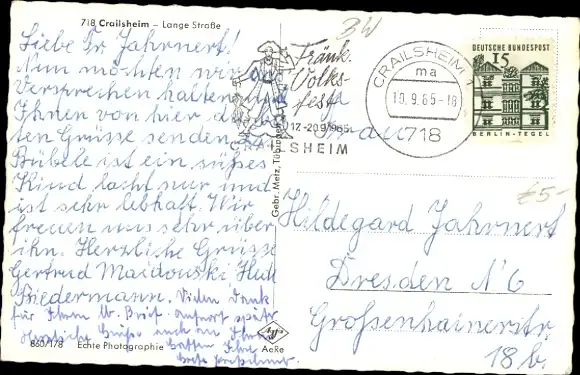 718 Crailsheim – Lange Straße
Liebe Fr Jahrnert!
Nun möchten wir das
Versprechen halten und
Ihnen von hier die
ten Grüsse senden. Das
Bübele ist ein süßes
Kind lacht nur und
ist sehr lebhaft. Wir
freuen uns sehr über
ihn. Herzliche Grüsse
Gertrud Maidowski
Friedermann. Vielen Dank
für Ihren lb. Brief. Antwort später
Herzliche Grüße auch an Ihren
Gatten Ihre
860/178 Echte Photographie
Gebr. Metz, Tübingen
Agfa
AeRe
Fränk.
Volks-
fest
17.-20.9.1965
CRAILSHEIM
CRAILSHEIM 1
ma
10.9.65-18
718
DEUTSCHE BUNDESPOST
15
BERLIN-TEGEL
€5-
Hildegard Jahrnert
Dresden N 6
Großenhainerstr.
18 b.